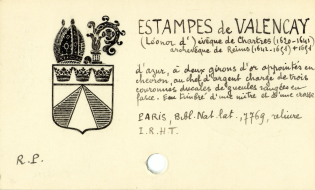 ESTAMPES de VALENCAY
(Léonor d') évêque de Chartres (1620-1641)
archevêque de Reims (1641-1651) † 1651
d'azur, à deux girons d'or appointés en
chevron, au chef d'argent chargé de trois
couronnes ducales de gueules rangées en
fasce. - Ecu timbré d'une mitre et d'une crosse
PARIS, Bibl. Nat. lat., 7769, reliure
I.R.H.T.
R.P.